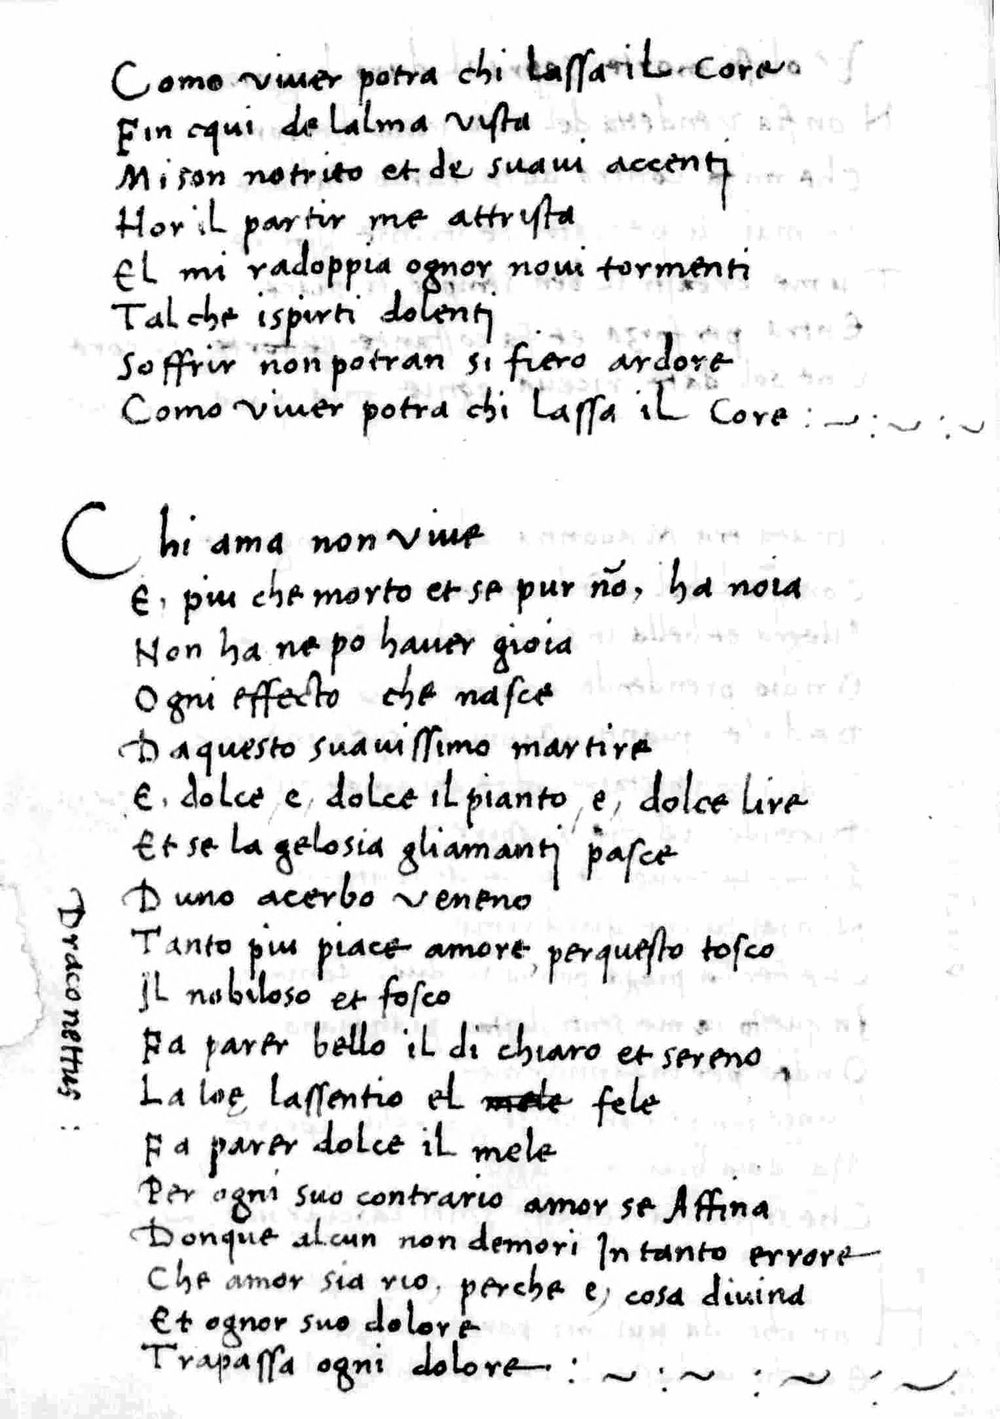 Como viver potra chi lassa il Core.
Fin cqui de lalma vista
Mi son notrito et de suavi accenti
Hor il partir me attrista
El mi radoppia ognor novi tormenti
Tal che ispirti dolenti
Soffrir non potran si fiero ardore
Como viver potra chi lassa il Core : ~ : ~ : ~
Chi ama non vive
E, piu che morto et se pur nõ, ha noia
Non ha ne po haver gioia
Ogni effecto che nasce
Da questo suavissimo martire
E, dolce, e, dolce il pianto, e, dolce lire
Et se la gelosia gliamanti pasce
Duno acerbo veneno
Tanto piu piace amore, perquesto tosco
Il nobiloso et fosco
Fa parer bello il di chiaro et sereno,
La loę lassentio el mele fele
Fa parer dolce il mele
Per ogni suo contrario amor se Affina
Donque alcun non demori In tanto errore
Che amor sia rio, perche e, cosa divina
Et ognor suo dolore
Trapassa ogni dolore : ~ : ~ : ~ : ~
Draconettus :